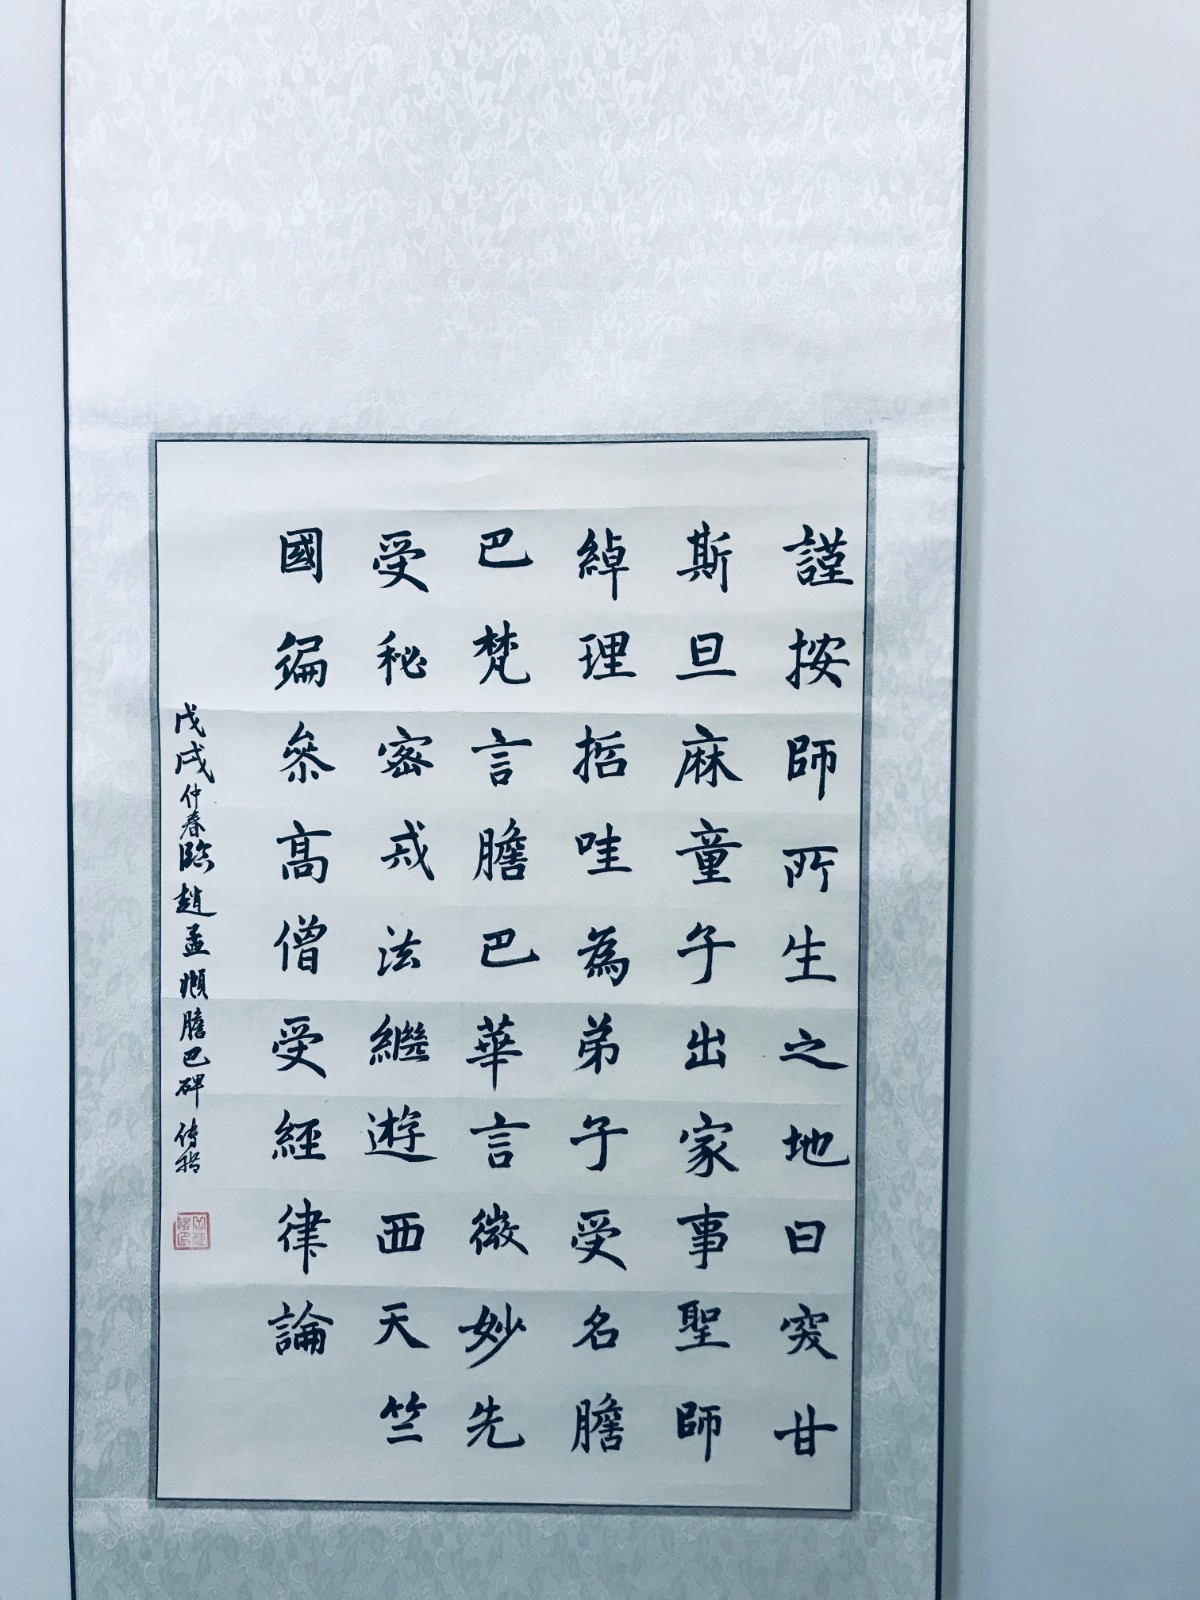 謹按師所生之地曰突甘
斯旦麻童子出家事聖師
綽理哲哇為弟子受名膽
巴梵言膽巴華言微妙先
受秘密戒法繼遊西天竺
國徧叅高僧受經律論
戊戌仲春臨趙孟頫膽巴碑